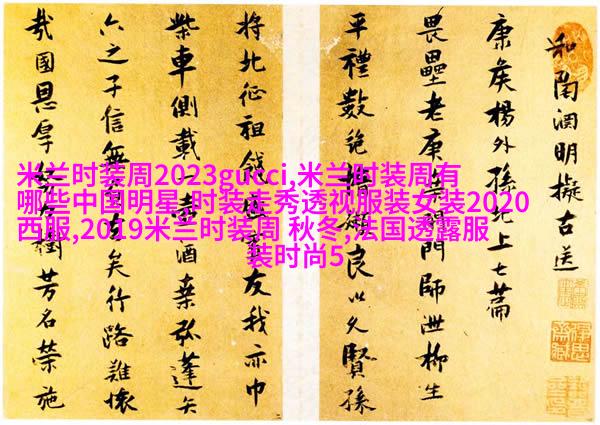 和陶淵明擬古送
康侯楊外孫北上七篇
畏壘老庚桑門師泄柳生
平禮數絶指良以久賢孫
將北征祖餞友我亦巾
柴車側載一壺酒桑弧蓬矢
六之子信無矣行路難懷
哉國恩厚樹芳名榮施
米兰时装周2023gucci,米兰时装周有
哪些中国明星,时装走秀透视服装女装2020
西服,2019米兰时装周 秋冬,法国透露服
装时尚5